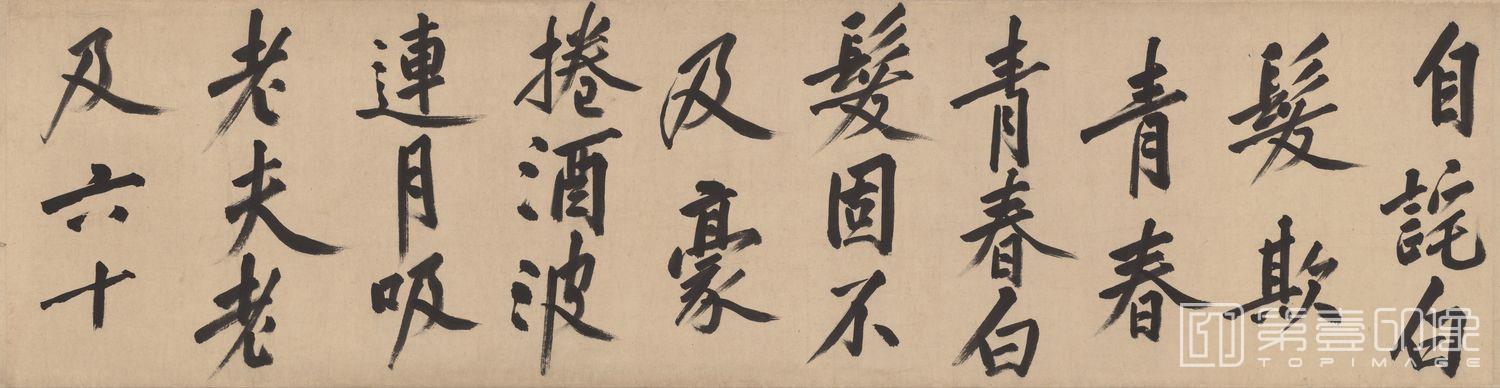 自詫白
髮欺
青春
青春白
髮固不
及豪
捲酒波
連月吸
老夫老
及六十
第壹印象
TOPIMAGE